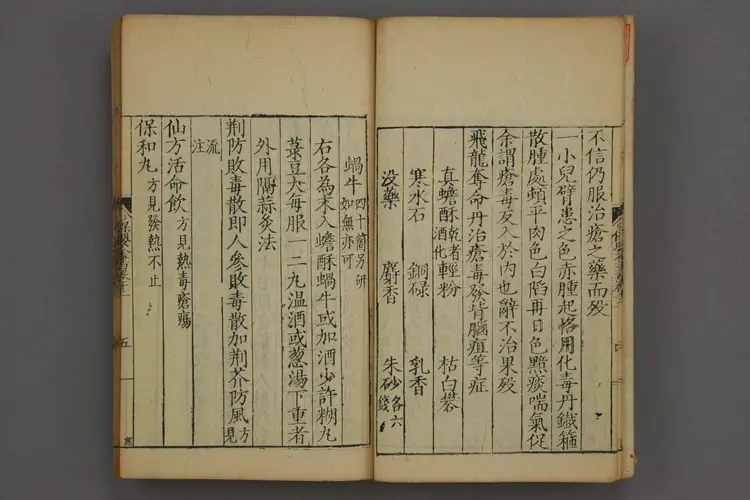 不信仍服治瘡之藥而歿
一小兒臂患之色赤腫起恪用化毒丹鐵箍
散腫處頓平肉色白陷再日色黯痰喘氣促
余謂瘡毒反入於內也辭不治果歿
飛龍奪命丹治瘡毒發背腦疽等症
真蟾酥乾者酒化 輕粉 枯白礬
寒水石 銅碌 乳香
没藥 麝香 朱砂各六錢
蝸牛四十箇另研如無亦可
右各為末入蟾酥蝸牛或加酒少許糊丸
菉豆大每服一二丸温酒或葱湯下重者
外用隔蒜灸法
荆防敗毒散即人參敗毒散加荆芥防風方見
流注
仙方活命飲方見熱毒瘡瘍
保和丸方見發熱不止
五